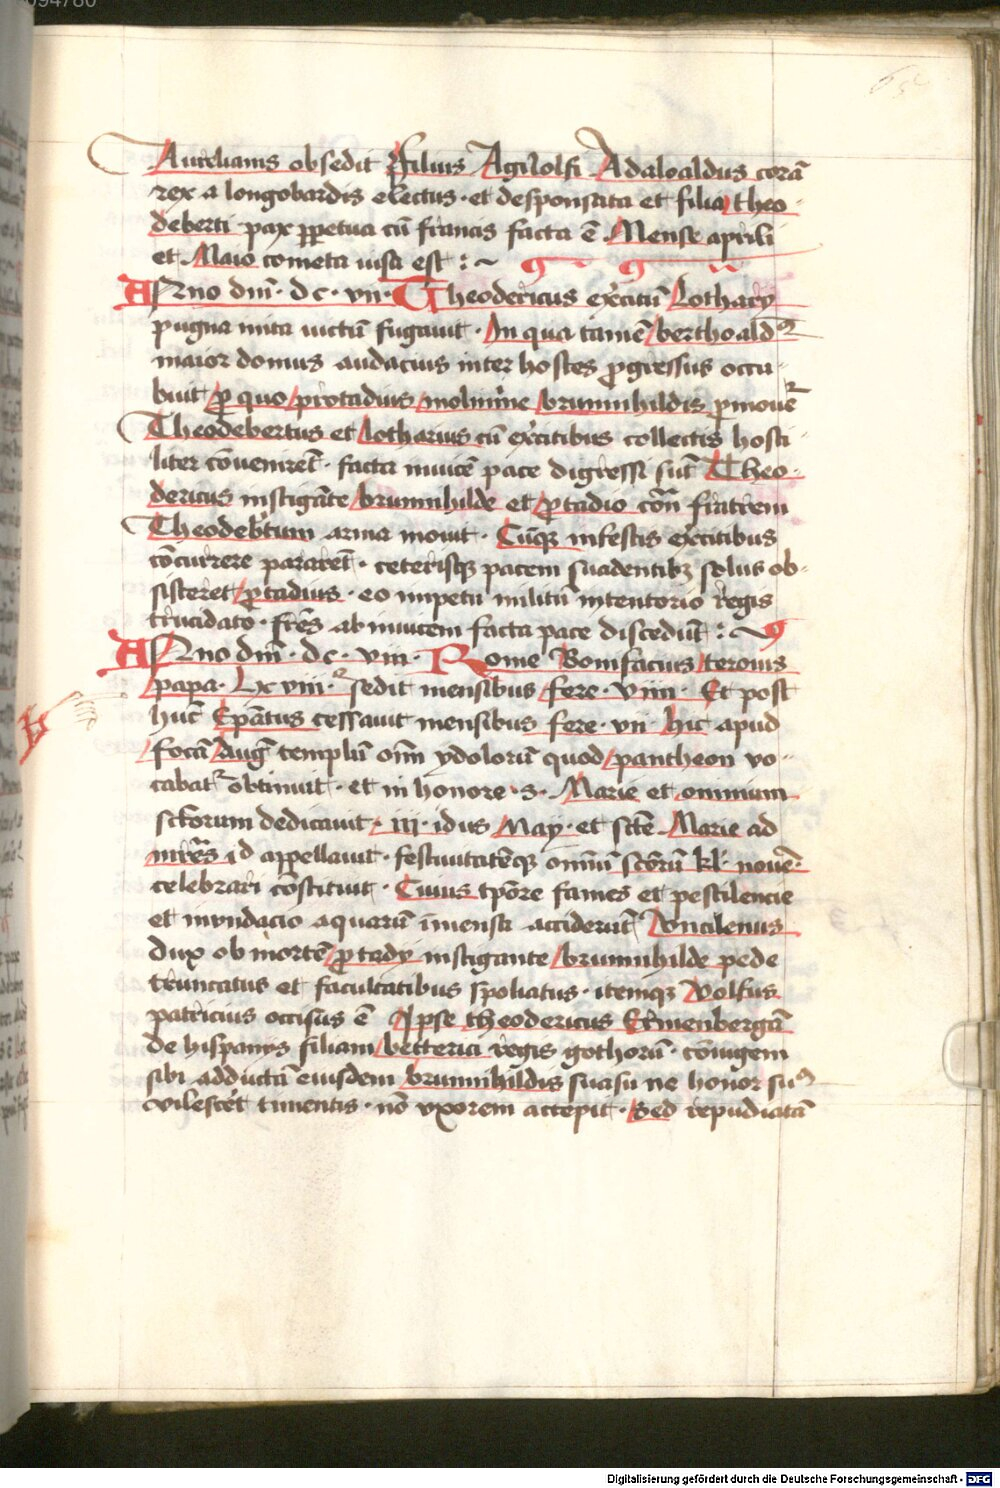 65
Aurelianis obsedit Filius Agilolfi Adaloaldus corā
rex a longobardis electus · et desponsata et filia theo-
deberti pax ꝑpetua cū francis facta ē Mense aprili
et Maio cometa uisa est : ~
Anno dnī · dc · vii · Theodericus exc̄itū Lothary
pugna inita uictū fugauit · In qua tamē berthoaldꝰ
maior domus audacius inter hostes ꝓgressus occu-
buit ꝓ quo protadius molimīne brunnihildis ꝓmouet᷑
Theodebertus et lotharius cū exc̄itibus collectis hosti
liter cōuenirēt · facta inuicē pace digressi sūt Theo-
dericus instigāte brunnihilde et ꝓtadio cōn fratrem
Theodeb̄tum arma mouit · Cūqꝫ infestis exc̄itibus
cōcurrere pararēt · ceterisqꝫ pacem suadentibꝫ solus ob-
sisteret ꝓtadius · eo impetu militū intentorio regis
trucidato · frēs ab inuicem facta pace discedūt : ~
Anno dnī · dc · viii · Rome Bonifacius tercius
papa · Lxviii · sedit mensibus fere · viiii · Et post
hūc Epātus cessauit mensibus fere · vii · hic apud
focā Aug᷑ templū oīm ydolorū quod pantheon vo-
cabat᷑ obtinuit · et in honore · s · Marie et omnium
sctorum dedicauit · iii · idus May · et scte Marie ad
mr̄es id appellauit · festiuitatēqꝫ omīū scōrū kl · nouē ·
celebrari cōstituit · Cuius tp̄ore fames et pestilencie
et inundacio aquarū īmensa acciderūt Vncilenus
dux ob mortē ꝓtady instigante brunnihilde pede
truncatus et facultatibus spoliatus · itemqꝫ Volfus
patricius occisus ē Ipse theodericus Ermenbergā
de hispanys filiam betterici regis gothorū · cōiugem
sibi adductā eiusdem brunnihildis suasu ne honor suꝰ
vilescēt timentis · nō vxorem accepit · Sed repudiatā
Digitalisierung gefördert durch die Deutsche Forschungsgemeinschaft · DFG